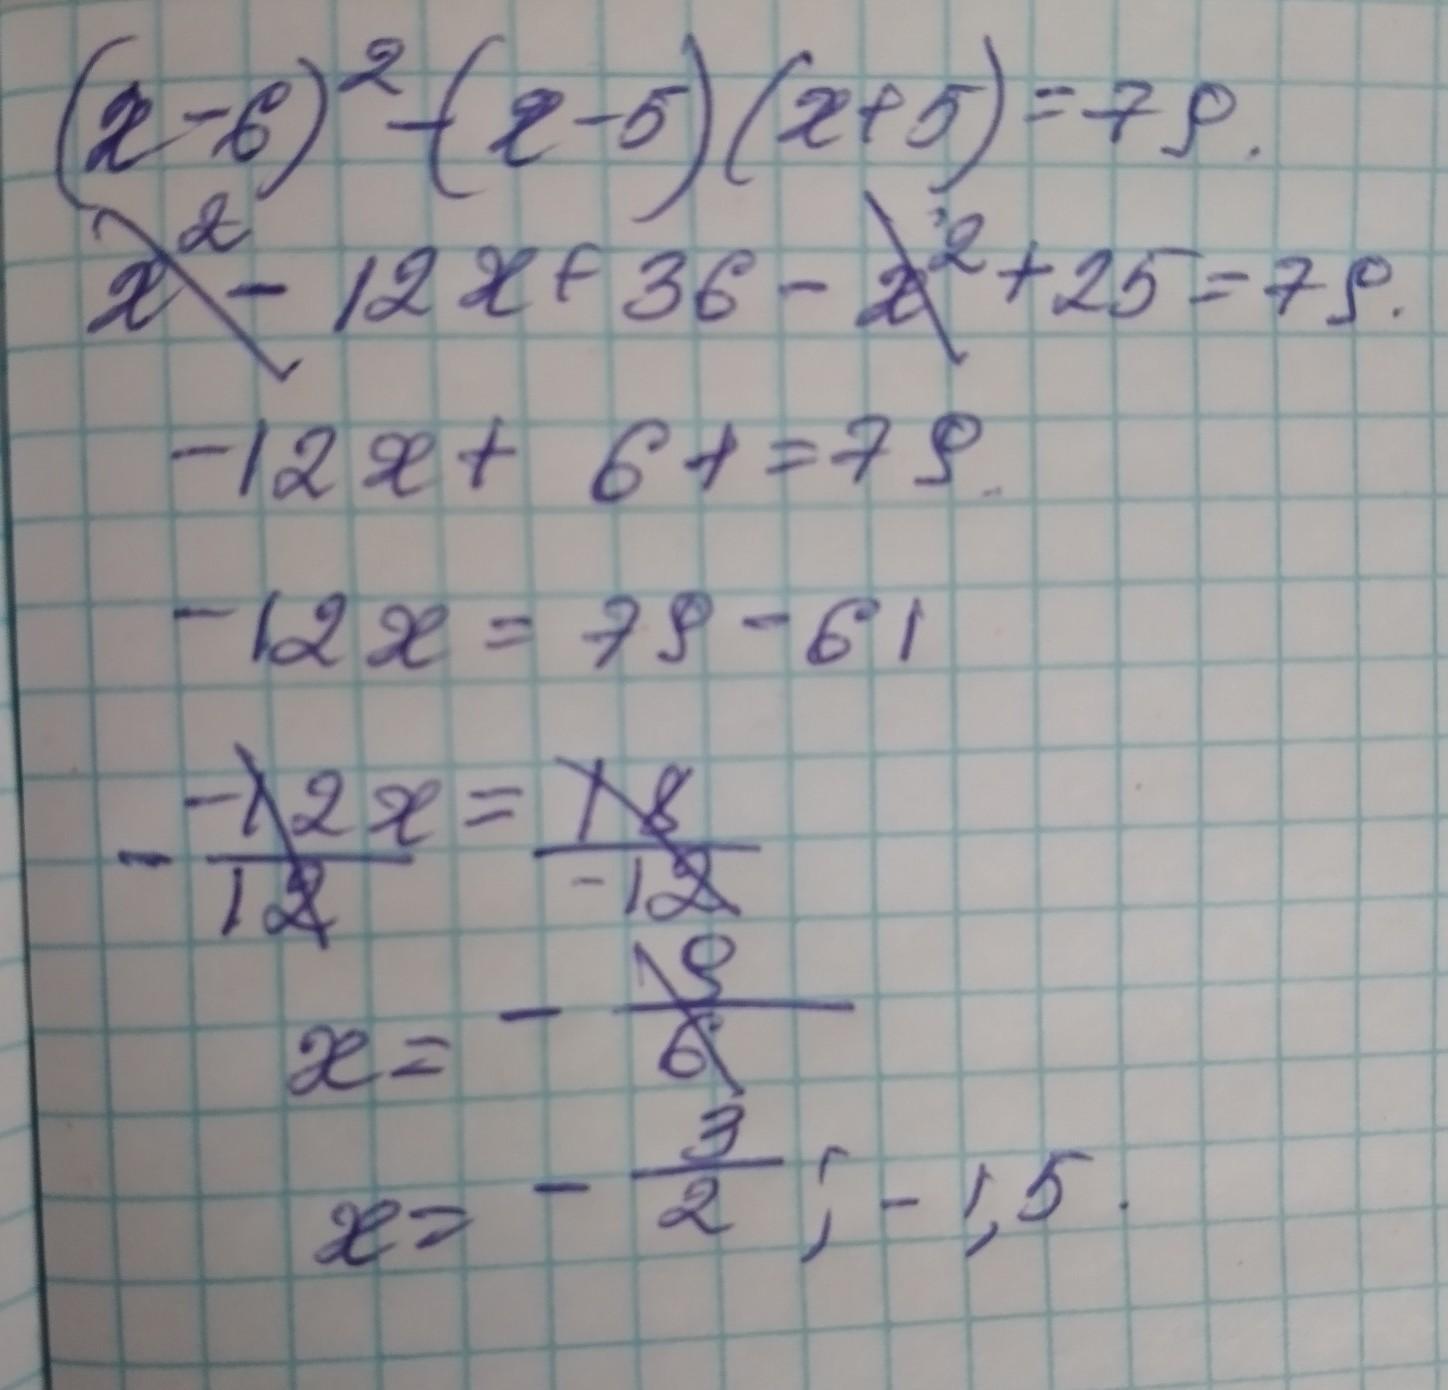 (x-6)² - (x-5)(x+5) = 79.
x² - 12x + 36 - x² + 25 = 79.
-12x + 61 = 79.
-12x = 79 - 61
- -12x/12 = 18/-12
x = - 9/6
x = - 3/2 ; -1,5.